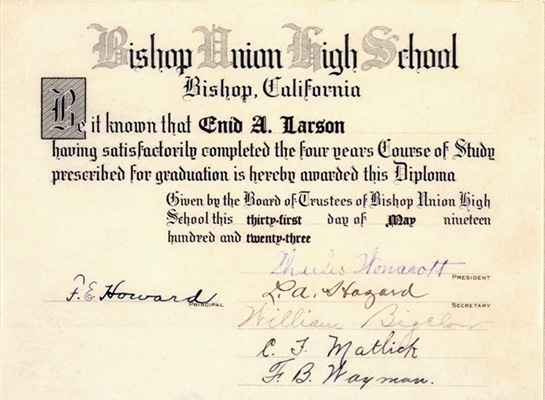 Bishop Union High School
Bishop, California
Be it known that Enid A. Larson
having satisfactorily completed the four years Course of Study
prescribed for graduation is hereby awarded this Diploma
Given by the Board of Trustees of Bishop Union High
School this thirty-first day of May nineteen
hundred and twenty-three
Charles Wonacott
PRESIDENT
F. E. Howard
PRINCIPAL
L. A. Hazard
SECRETARY
William Bigelow
C. F. Matlick
F. B. Wayman.